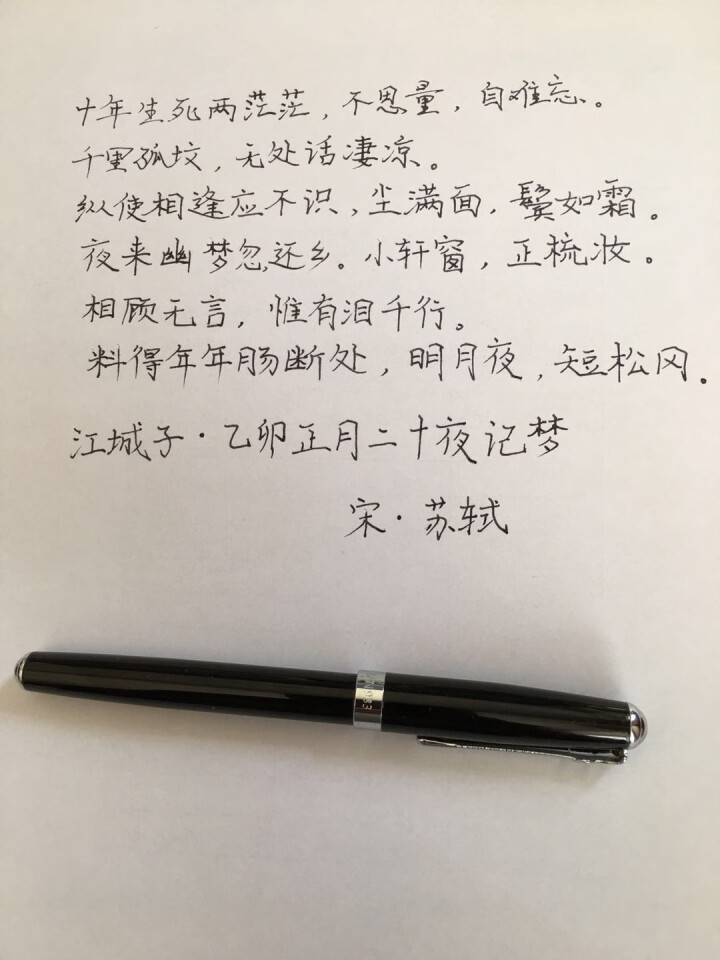 十年生死两茫茫，不思量，自难忘。
千里孤坟，无处话凄凉。
纵使相逢应不识，尘满面，鬓如霜。
夜来幽梦忽还乡。小轩窗，正梳妆。
相顾无言，惟有泪千行。
料得年年肠断处，明月夜，短松冈。
江城子·乙卯正月二十夜记梦
宋·苏轼